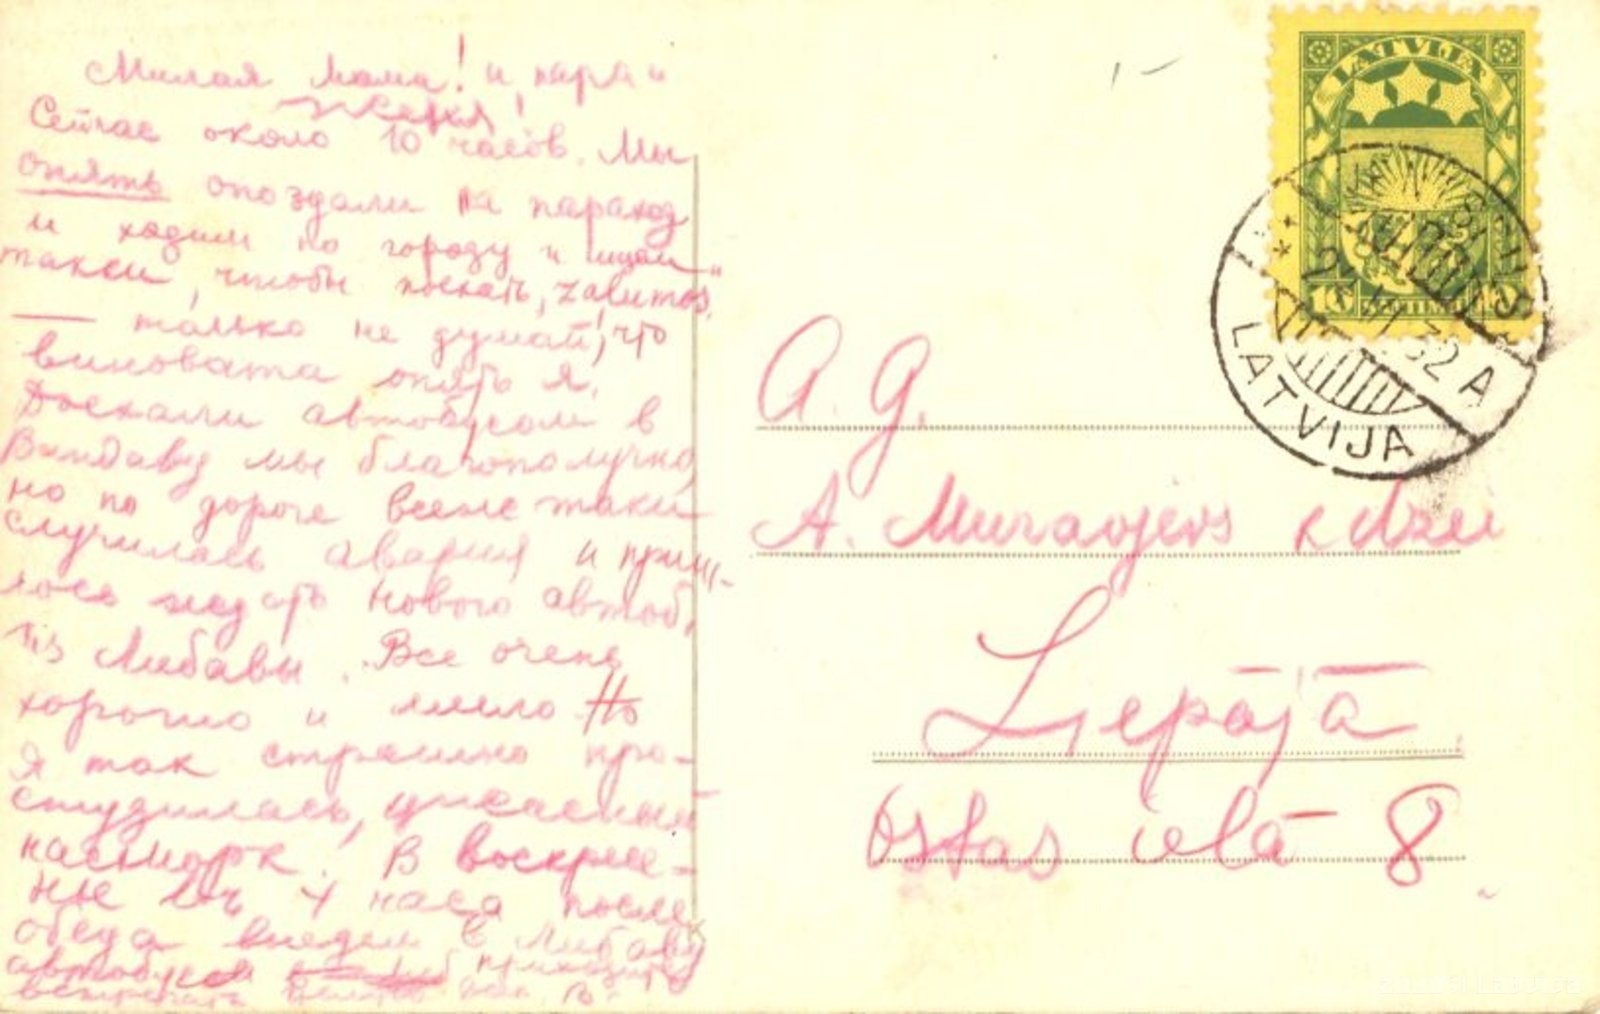 Милая мама! и
Женя!
Сейчас около 10 часов. Мы
опять опоздали на параход
и ходим по городу и ищем
такси, чтобы поехать,
— только не думай, что
виновата опять я.
Доехали автобусом в
Виндаву мы благополучно,
но по дороге всеже таки
случилась авария и приш-
лось ждать нового автоб.
из Либавы. Все очень
хорошо и мило Но
я так страшно про-
студилась, ужасный
насморк. В воскресе-
нье в 4 часа после
обеда выедем в Либаву
автобусом приходите
встречать
LATVIJA
10 SANTIMU 10
32 A
LATVIJA
A. G.
A. Muravjevs kdzei
Liepājā.
Ostas ielā 8